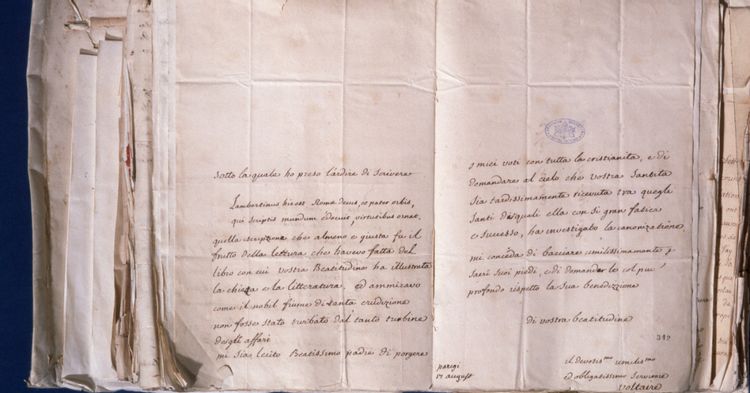 sotto la quale ho preso l'ardire di scrivere
Lambertinus hic est Romæ decus, et pater orbis,
qui scriptis mundum edocuit, virtutibus ornat,
quella scrizzione che almeno e giusta fu il
frutto della lettura che havevo fatta del
libro con cui vostra Beatitudine ha illustrata
la chiesa e la litteratura, ed ammiravo
come il nobil fiume di tanta erudizione
non fosse stato turbato dal tanto turbine
degli affari
mi sia lecito Beatissimo padre di porgere
parigi
17 august
i miei voti con tutta la cristianita, e di
domandare al cielo che vostra santita
sia tardissimamente ricevuta tra quegli
santi de quali ella con si gran fatica
e successo, ha investigato la canonizazione,
mi conceda di bacciare umilissimamente i
sacri suoi piedi, e di domandar le col piu'
profondo rispetto la sua benedizzione
di vostra beatitudine
il devotis^mo umilis^mo
ed obligatissimo servitore
Voltaire